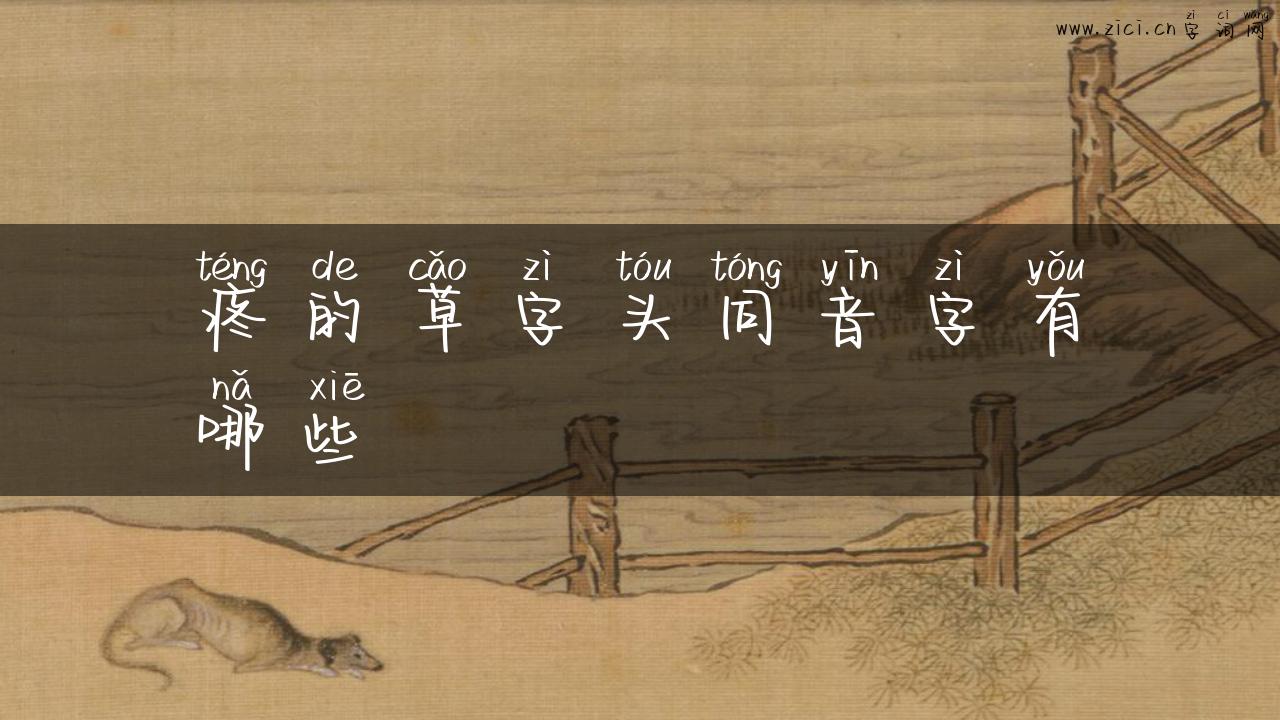 zì cí wǎng
www.zici.cn 字词网
téng de cǎo zì tóu tóng yīn zì yǒu
疼的草字头同音字有
nǎ xiē
哪些